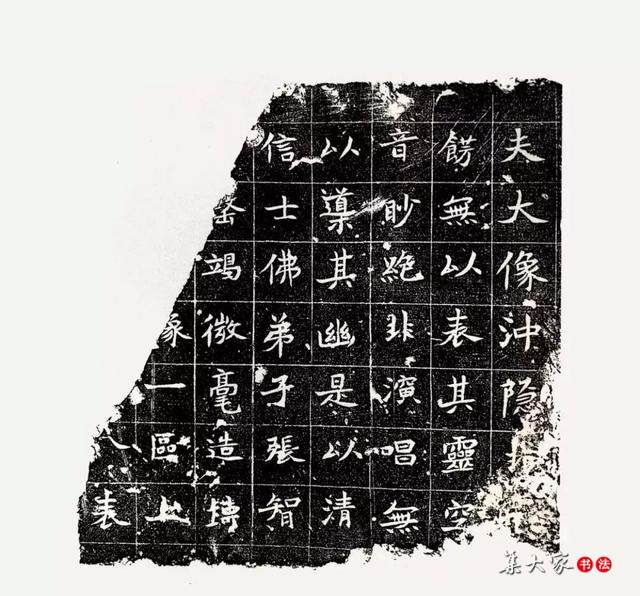 夫大像沖隐
餝無以表其靈空
音眇絶非演唱無
以導其幽是以清
信士佛弟子張智
竭微毫造塼
像一區上
表
集大家 书法